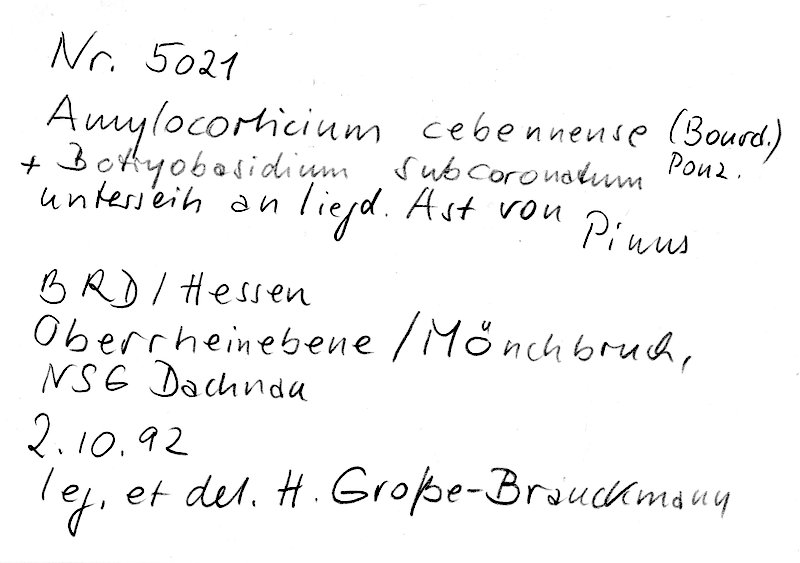 Nr. 5021
Amylocorticium cebennense (Bourd.) Pouz.
+ Botryobasidium subcoronatum
unterseih an liegd. Ast von Pinus
BRD / Hessen
Oberrheinebene / Mönchbruch,
NSG Dachnau
2.10.92
leg. et det. H. Große-Brauckmann